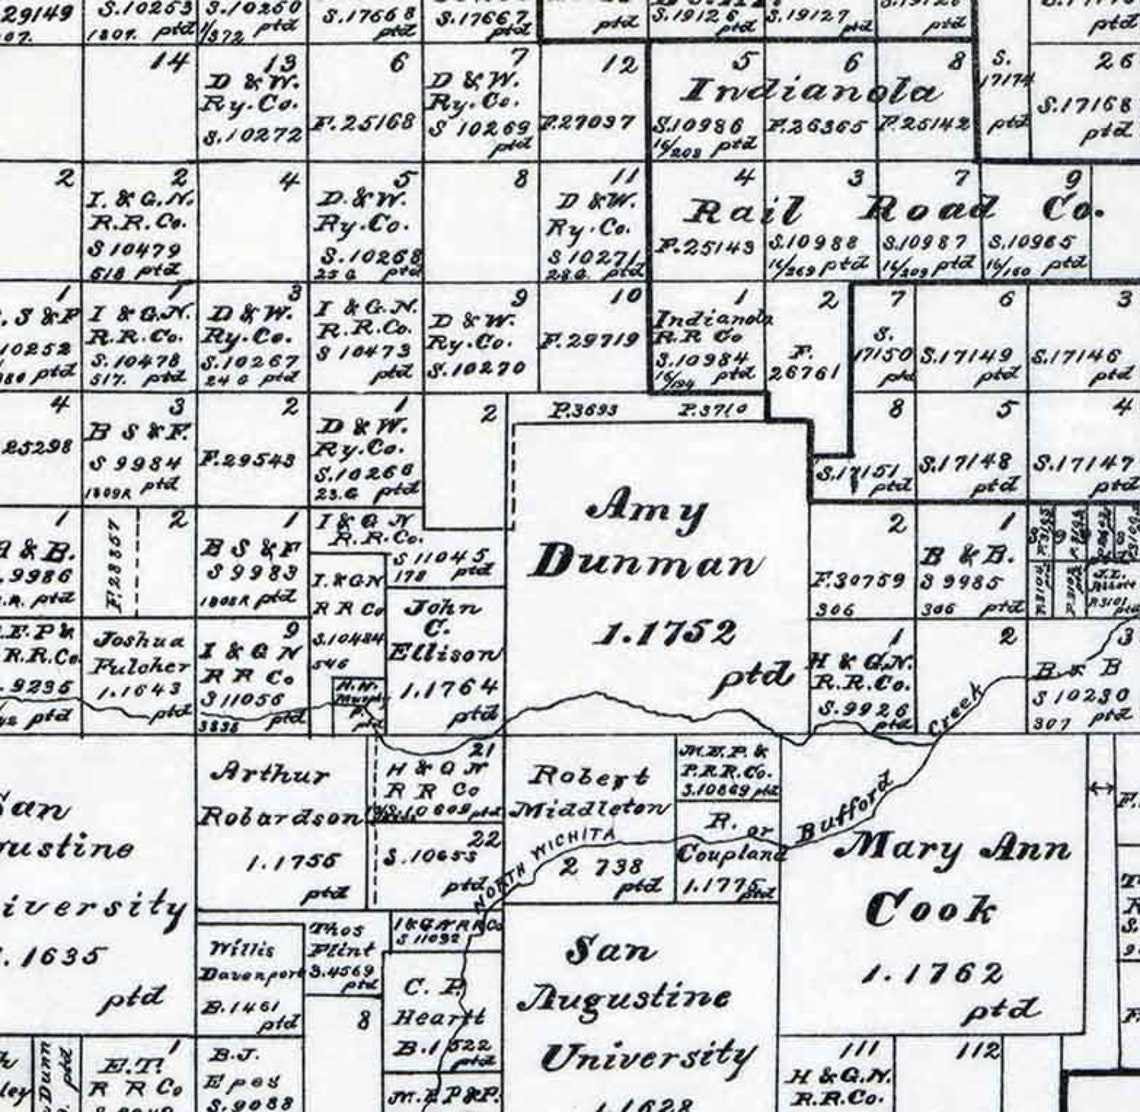 29149
S.10253
ptd
S.10260
1/372 ptd
S.17668
ptd
S.17667
ptd
ptd
S.19126
ptd
S.19127
ptd
ptd
14
13
D & W.
Ry. Co.
S.10272
6
F.25168
7
D & W.
Ry. Co.
S 10269
ptd
12
F.27037
5
6
8
Indianola
S.10986
16/208 ptd
F.26365
F.25142
S.
17174
ptd
26
S.17168
ptd
2
2
I. & G.N.
R.R.Co.
S 10479
618 ptd
4
5
D. & W.
Ry. Co.
S.10268
25 G ptd
8
11
D & W.
Ry. Co.
S 10271
28 G. ptd
4
3
7
9
Rail Road Co.
F.25143
S.10988
16/269 ptd
S.10987
16/209 ptd
S.10985
16/160 ptd
1
S & F
10252
ptd
1
I & G.N.
R.R.Co.
S.10478
517. ptd
3
D & W.
Ry. Co.
S.10267
24 G ptd
I & G.N.
R.R.Co.
S 10473
ptd
9
D & W.
Ry. Co.
S.10270
10
F.29719
1
Indianola
R.R Co
S.10984
16/194 ptd
2
F.
26761
7
S.
17150
ptd
6
S.17149
ptd
3
S.17146
ptd
4
25298
3
B S & F.
S 9984
1809R ptd
2
F.29543
1
D & W.
Ry. Co.
S.10266
23.G ptd
2
P.3693 P.3710
8
S.17151
ptd
5
S.17148
ptd
4
S.17147
ptd
Amy
Dunman
1.1752
ptd
1
& B.
9986
ptd
F.28857
2
1
B S & F
S 9983
1808R ptd
I & G N
R.R.Co.
S 11045
178 ptd
I. & G N
R R Co
S.10484
546
John
C.
Ellison
1.1764
ptd
2
F.30759
306
1
B & B.
S 9985
306 ptd
R.R.Co.
9236
ptd
Joshua
Fulcher
1.1643
ptd
9
I & G N
R R Co
S 11056
3838 ptd
H.H.
Murphy
P
ptd
1
H & G.N.
R.R.Co.
S.9926
ptd
2
3
B & B
S 10230
307 ptd
Creek
San
ustine
iversity
1635
ptd
Arthur
Robardson
1.1755
ptd
21
H & G N
R R Co
S.10609 ptd
22
S.10655
ptd
Robert
Middleton
2 738
ptd
NORTH WICHITA
M.E.P. &
P.R.R.Co.
S.10869 ptd
R.
Coupland
1.1775
ptd
or
Bufford
Mary Ann
Cook
1.1762
ptd
Willis
Davenport
B.1461
ptd
Thos
Flint
3.4569
ptd
8
I & G N R R Co
S 11092
C. P.
Heartt
B.1522
ptd
San
Augustine
University
1.1628
Dunn
ptd
E.T.
1
R R Co
B.J.
Epes
S.9088
M.E P & P.
111
H & G.N.
R.R.Co.
112